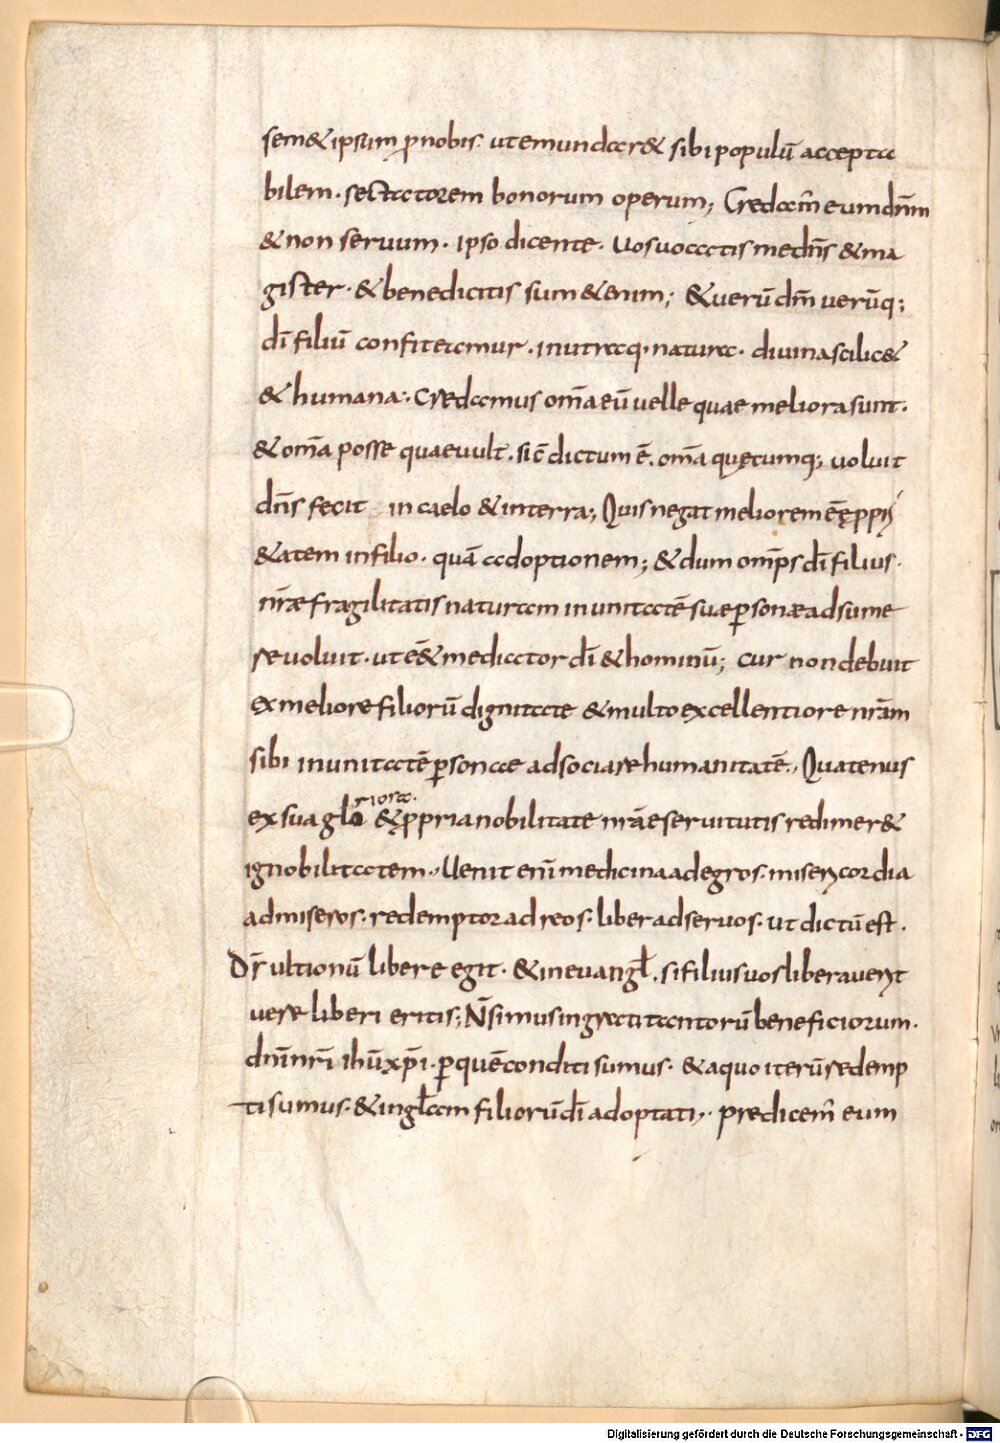 sem& ipsum ꝓnobis. ut emundar& sibi populū accepta
bilem. sectatorem bonorum operum; Credam̄ eum dn̄m
& non seruum. Ipso dicente. Uos uocatis me dn̄s & ma
gister. & benedicitis sum &enim; & uerū dm̄ uerūq;
dī filiū confiteamur. in utraq. natura. diuina scilic&
& humana. Credamus om̄a eū uelle quae meliora sunt.
& om̄a posse quae uult. sic̄ dictum ē. om̄a quęcumq; uoluit
dn̄s fecit in caelo & in terra; Quis negat meliorem eē
&atem in filio. quā adoptionem; & dum omp̄s dī filius.
nr̄ae fragilitatis naturam in unitatē suae ꝑsonae adsume
re uoluit. ut ēē & mediator dī & hominū; Cur non debuit
ex meliore filiorū dignitate & multo excellentiore nr̄am
sibi in unitatē ꝑsonae adsociare humanitatē. Quatenus
ex sua glo riosa. & ꝓpria nobilitate nr̄ae seruitutis redimer&
ignobilitatem. Uenit enī medicina ad egros. misericordia
ad miseros. redemptor ad reos. liber ad seruos. ut dictū est.
Dr̄ ultionū libere egit. & in euangł. si filius uos liberauerit
uere liberi eritis; N̄ simus ingrati tantorū beneficiorum.
dnī nr̄i ihū xp̄i. ꝑ quē conditi sumus. & a quo iterū redemp
ti sumus. & in głam filiorū dī adoptati. predicem̄ eum
Digitalisierung gefördert durch die Deutsche Forschungsgemeinschaft - DFG